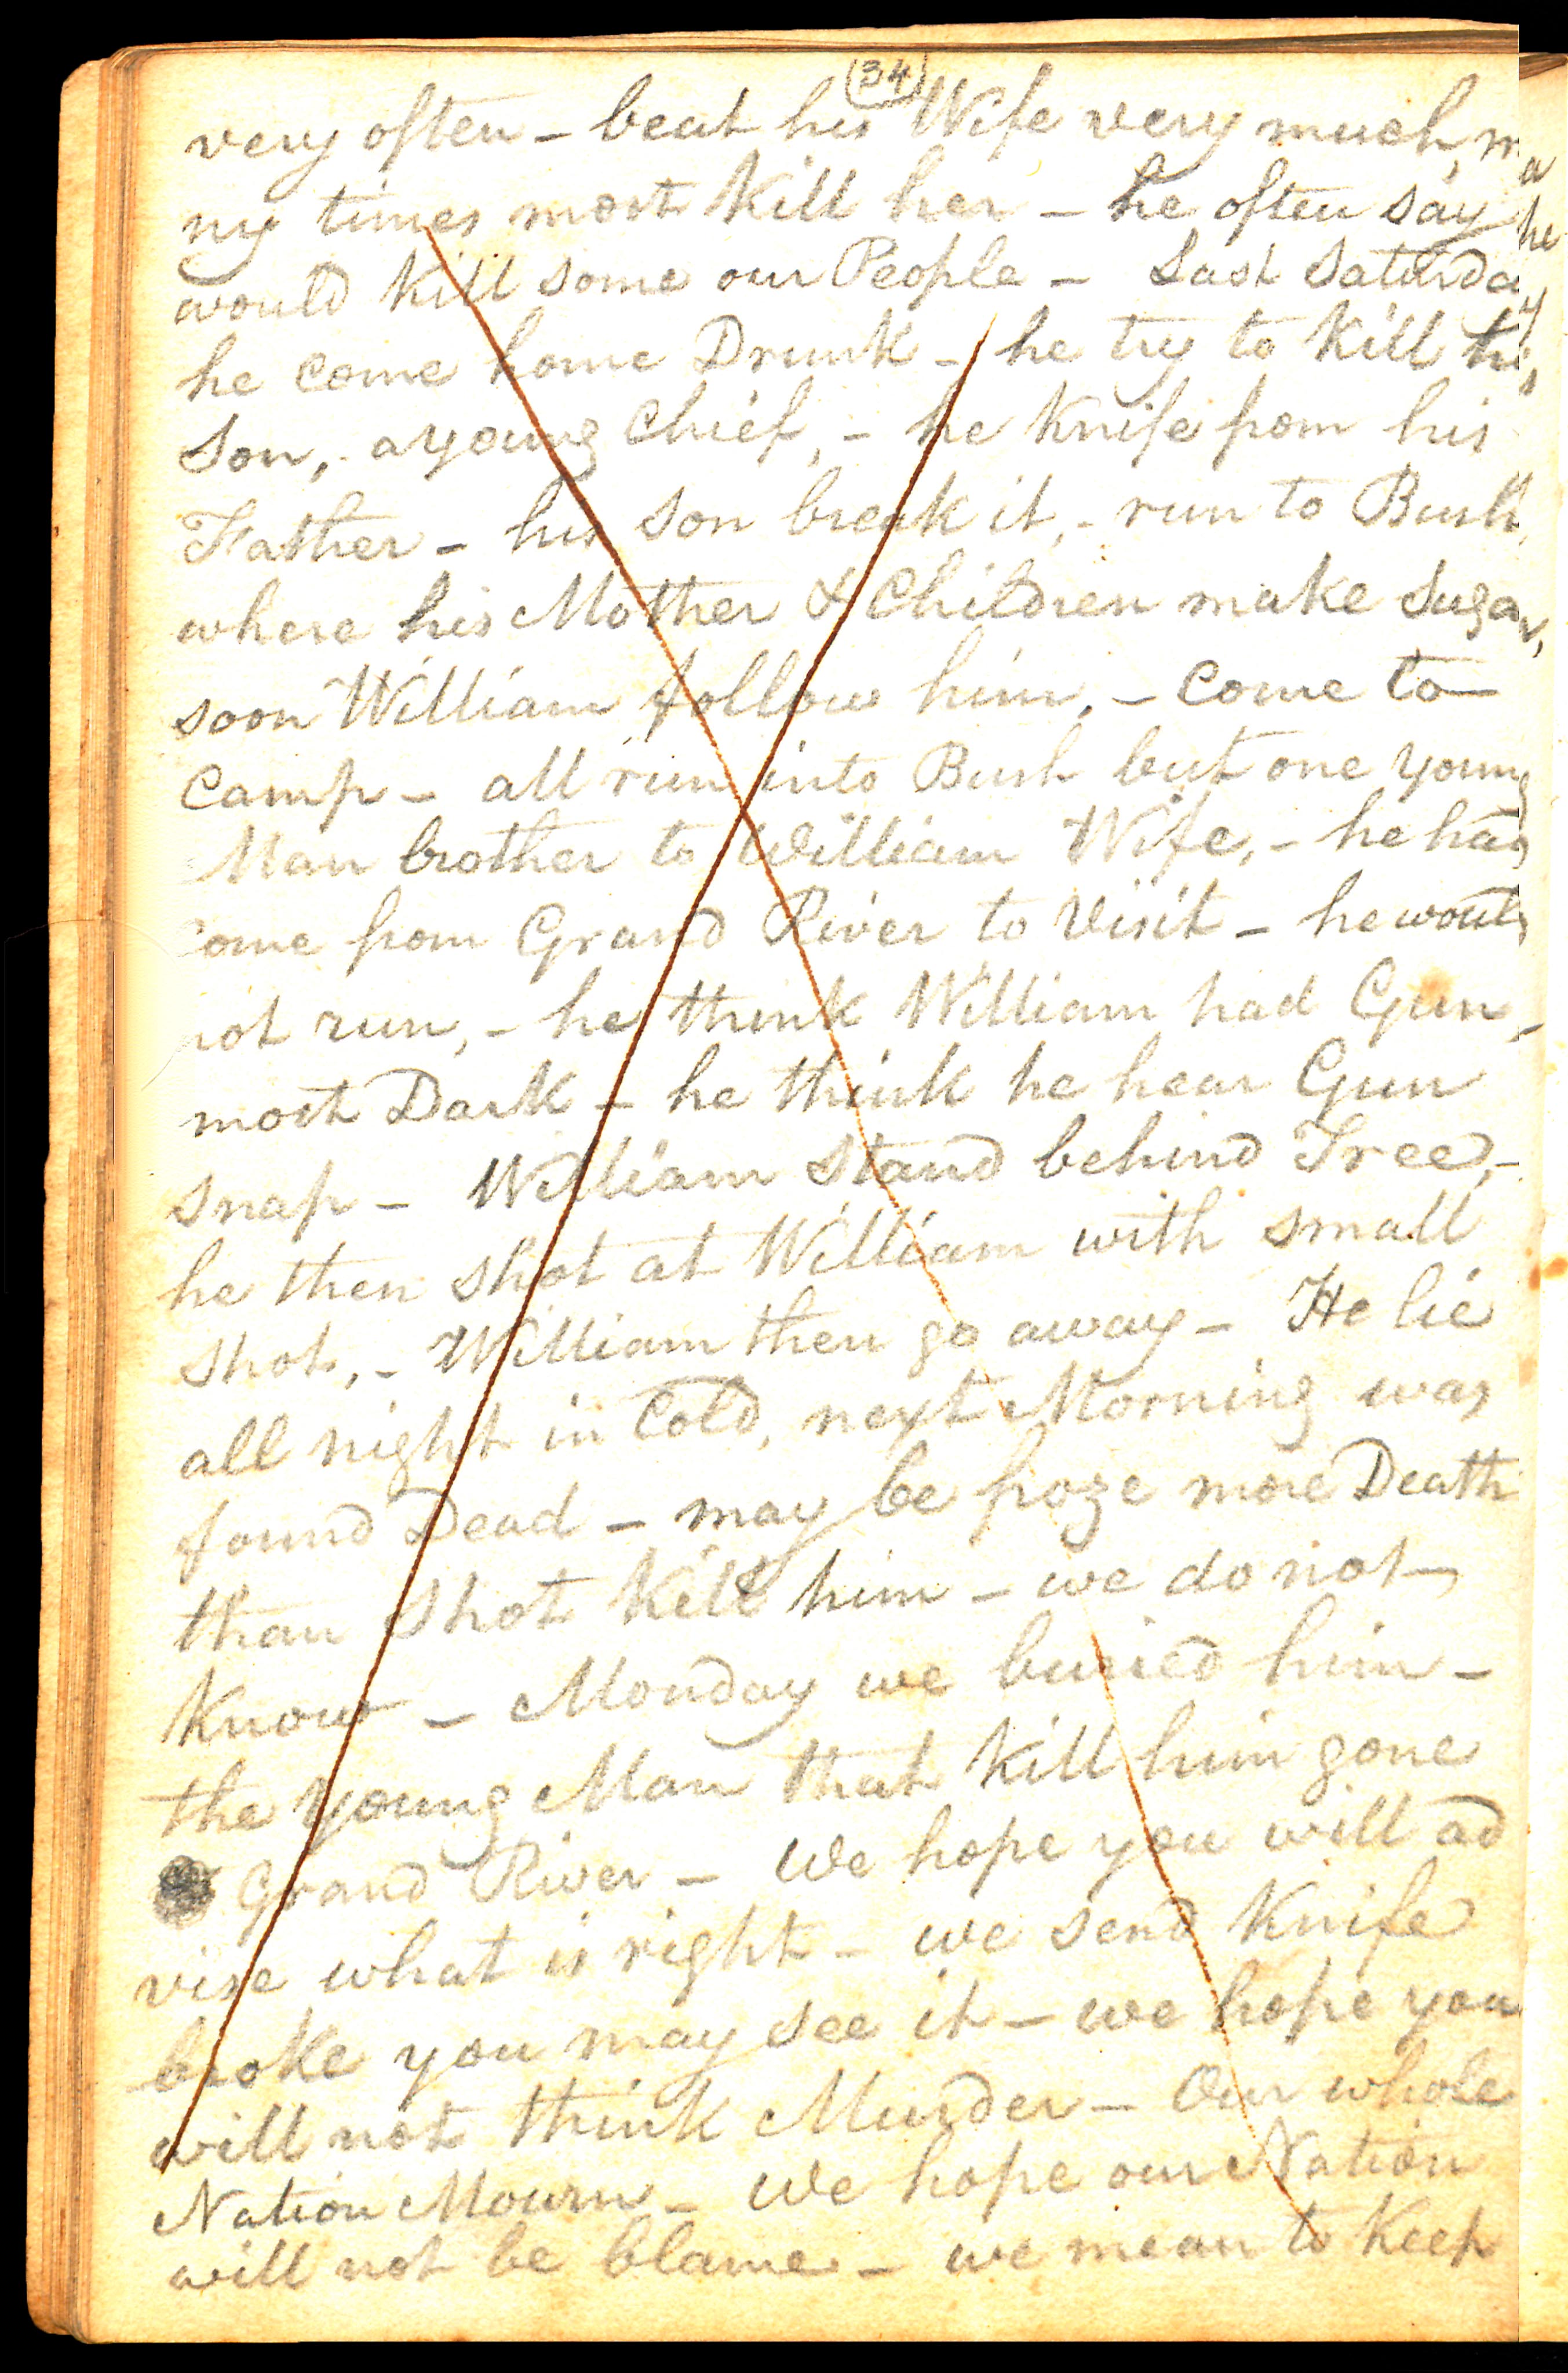 (34)
very often - beat his Wife very much, ma
ny times most kill her - he often say he
would kill some our People - Last Saturday
he come home Drunk - he try to kill his
Son, a young Chief, - he Knife from his
Father - his son break it, - run to Bush,
where his Mother & Children make Sugar,
soon William follow him, - come to
Camp - all run into Bush but one young
Man brother to William Wife, - he had
come from Grand River to Visit - he would
not run, - he think William had Gun, -
most Dark - he think he hear Gun
snap - William stand behind Tree, -
he then shot at William with small
shot, - William then go away - He lie
all night in Cold, next Morning was
found Dead - may be froze more Death
than shot kill him - we do not
know - Monday we buried him -
the young Man that kill him gone
Grand River - We hope you will ad
vise what is right - we send Knife
broke you may see it - we hope you
will not think Murder - Our whole
Nation Mourn - We hope our Nation
will not be blame - we mean to keep